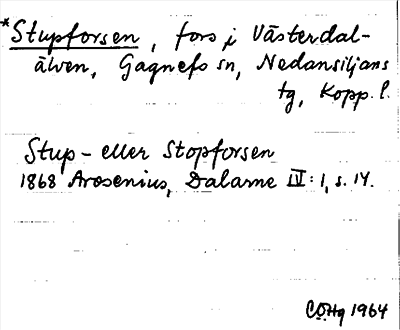 *Stupforsen, fors i Västerdal-
älven, Gagnefs sn, Nedansiljans
tg, Kopp. l.
Stup- eller Stopforsen
1868 Arosenius, Dalarne IV:1, s. 14.
CÖHg 1964